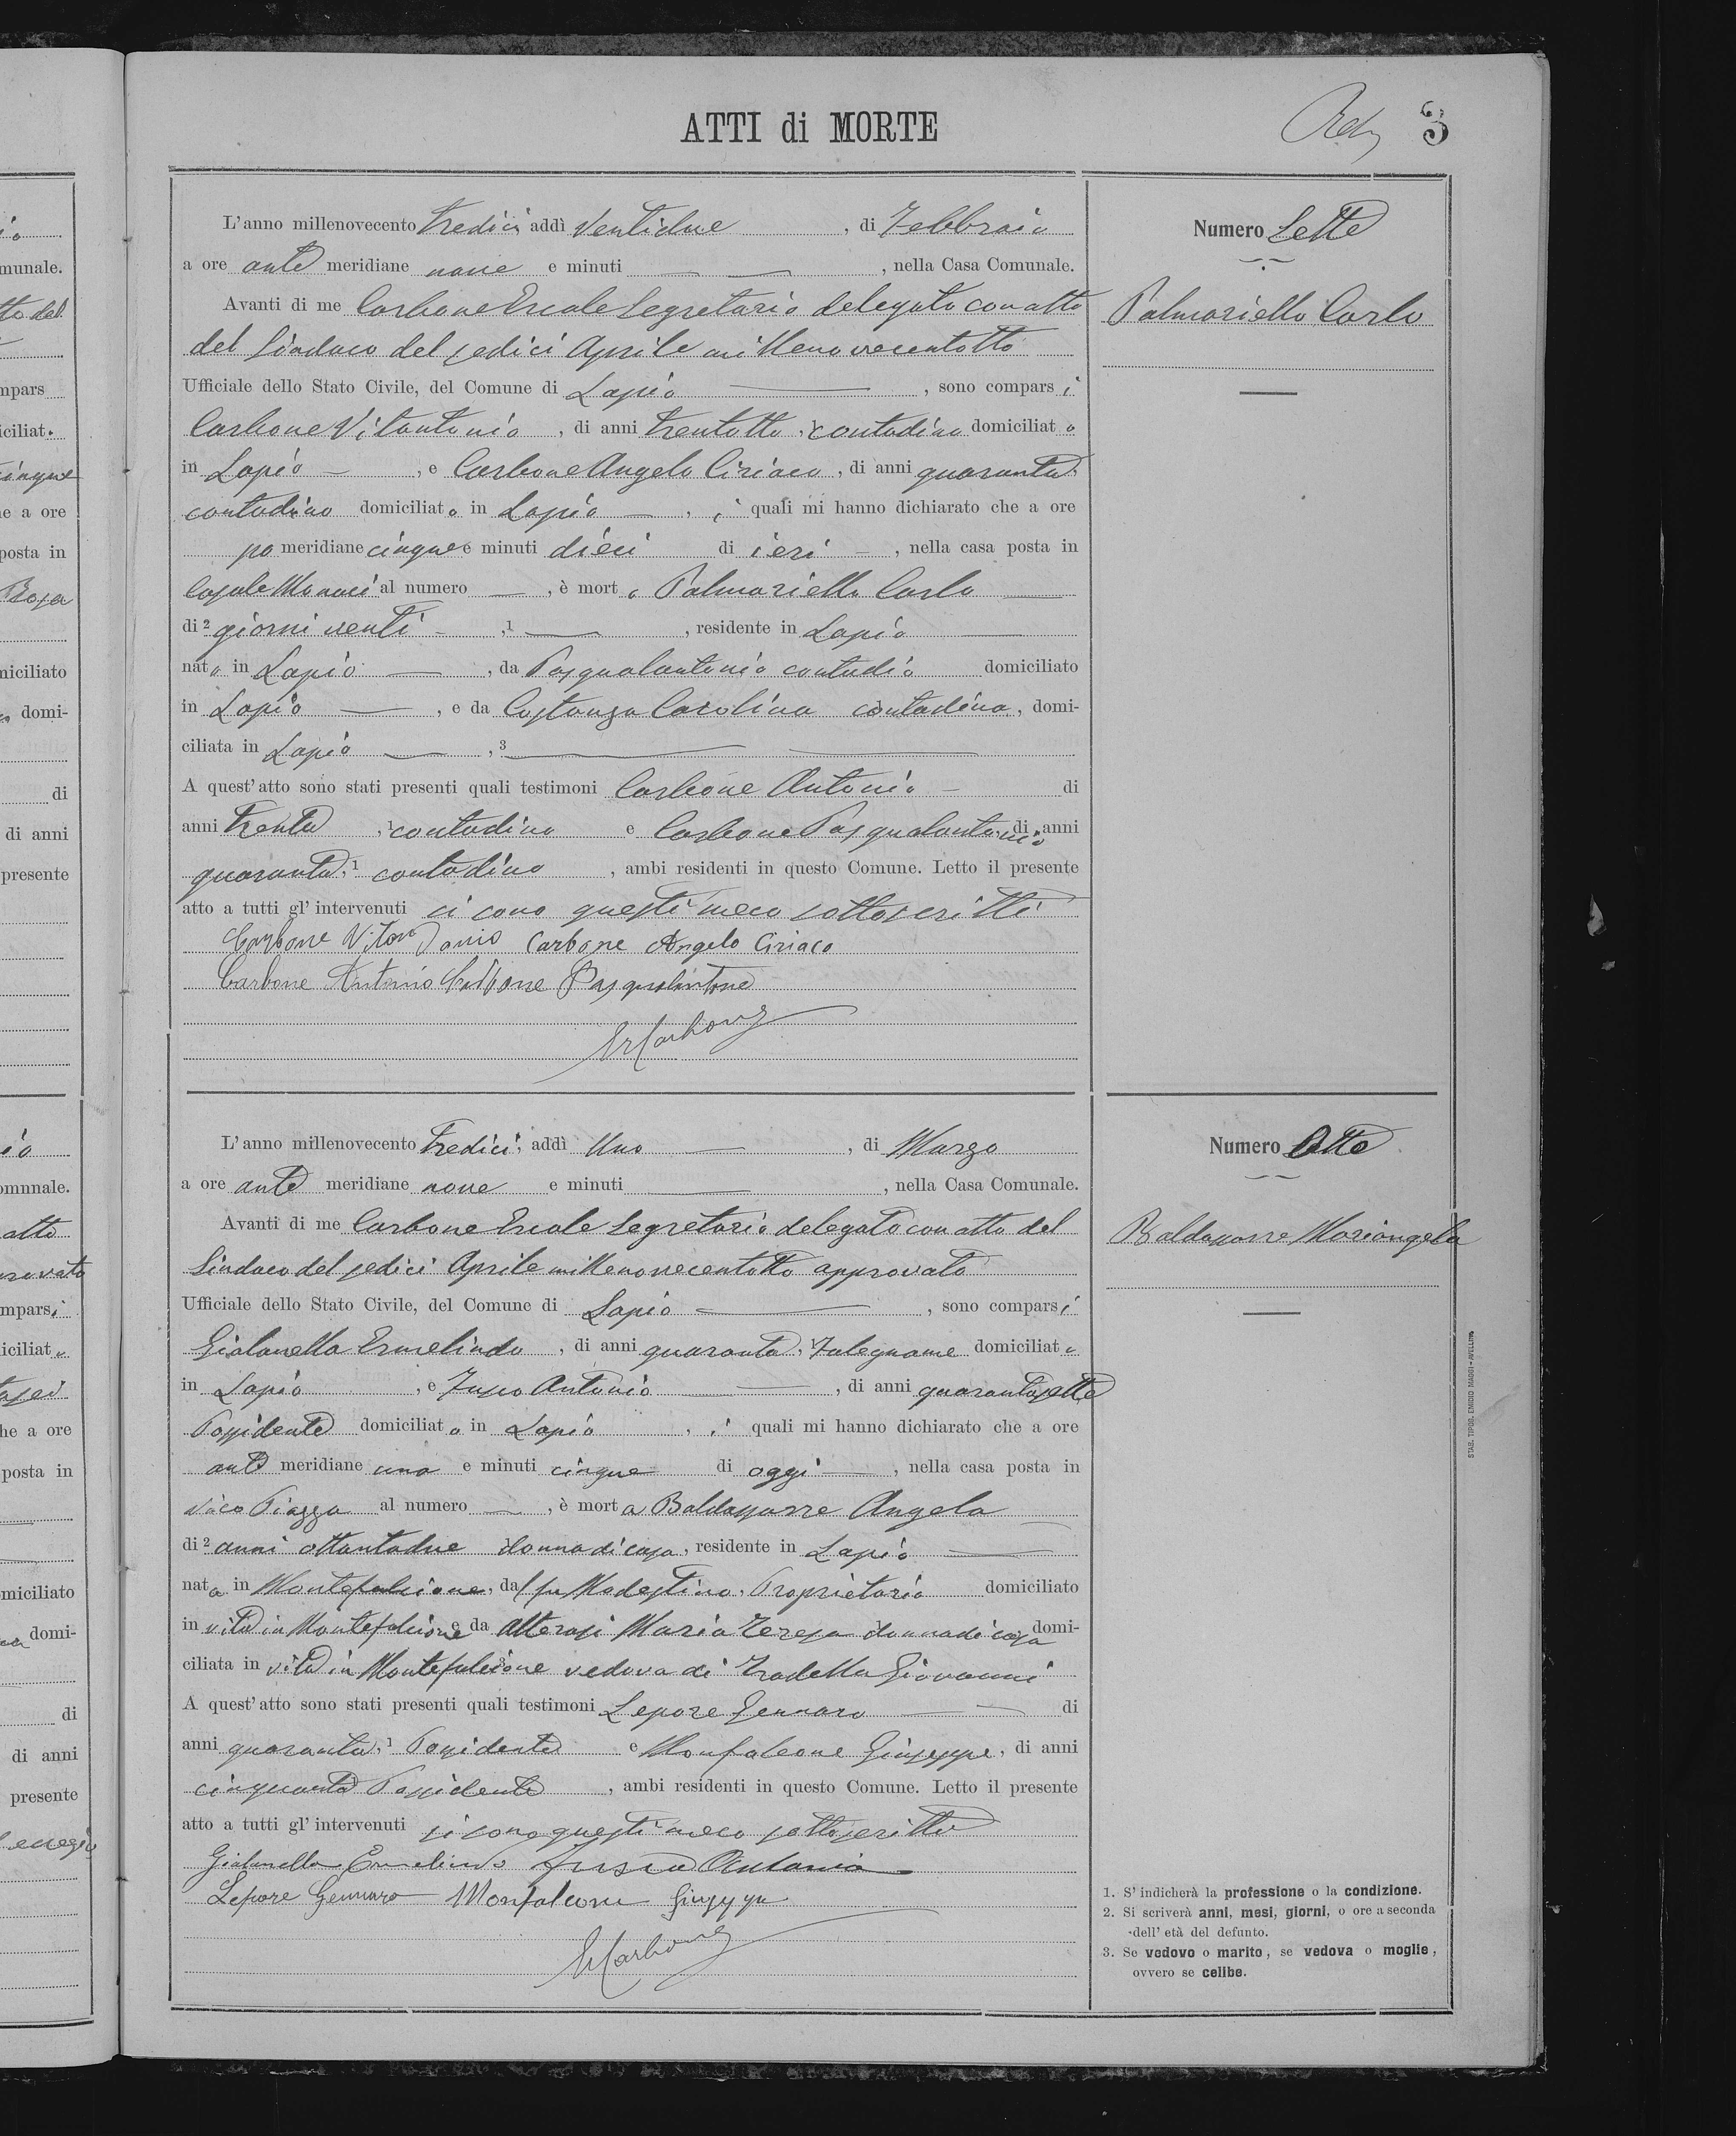 ATTI di MORTE
3
L'anno millenovecento tredici addì Ventidue, di Febbraio
a ore ante meridiane nove e minuti — —, nella Casa Comunale.
Avanti di me Carbone Ercole Segretario delegato con atto
del Sindaco del sedici Aprile millenovecentotto
Ufficiale dello Stato Civile, del Comune di Lapio —, sono comparsi
Carbone Vitantonio, di anni trentotto, 1 contadino domiciliato
in Lapio —, e Carbone Angelo Ciriaco, di anni quaranta,
contadino domiciliato in Lapio —, i quali mi hanno dichiarato che a ore
po meridiane cinque e minuti dieci di ieri —, nella casa posta in
Casale Monaci al numero —, è morto Palmariello Carlo —
di 2 giorni venti —, 1 —, residente in Lapio —
nato in Lapio —, da Pasqualantonio contadio domiciliato
in Lapio —, e da Costanza Carolina contadina, domi-
ciliata in Lapio —, 3 — —
A quest'atto sono stati presenti quali testimoni Carbone Antonio — di
anni trenta, 1 contadino e Carbone Pasqualantonio di anni
quaranta, 1 contadino, ambi residenti in questo Comune. Letto il presente
atto a tutti gl'intervenuti si sono questi meco sottoscritti
Carbone Vitantonio Carbone Angelo Ciriaco
Carbone Antonio Carbone Pasqualantonio
ErCarbone
Numero Sette
Palmariello Carlo
L'anno millenovecento tredici, addì Uno —, di Marzo
a ore ante meridiane nove e minuti —, nella Casa Comunale.
Avanti di me Carbone Ercole Segretario delegato con atto del
Sindaco del sedici Aprile millenovecentotto approvato
Ufficiale dello Stato Civile, del Comune di Lapio —, sono comparsi
Gialanella Ermelindo, di anni quaranta, 1 Falegname domiciliato
in Lapio, e Fusco Antonio —, di anni quarantasette
Possidente domiciliato in Lapio, i quali mi hanno dichiarato che a ore
ante meridiane una e minuti cinque di oggi —, nella casa posta in
Vico Piazza al numero —, è morta Baldassarre Angela —
di 2 anni ottantadue donna di casa, residente in Lapio —
nata in Montefalcione, dal fu Modestino, Proprietario domiciliato
in vita in Montefalcione e da Alterasi Maria Teresa donna di casa domi-
ciliata in vita in Montefalcione 3 vedova di Tradella Giovanni
A quest'atto sono stati presenti quali testimoni Lepore Gennaro — di
anni quaranta, 1 Possidente e Monfalcone Giuseppe, di anni
cinquanta Possidente, ambi residenti in questo Comune. Letto il presente
atto a tutti gl'intervenuti si sono questi meco sottoscritti
Gialanella Ermelindo Fusco Antonio
Lepore Gennaro Monfalcone Giuseppe
ErCarbone
Numero Otto
Baldassarre Mariangela
1. S'indicherà la professione o la condizione.
2. Si scriverà anni, mesi, giorni, o ore a seconda
dell'età del defunto.
3. Se vedovo o marito, se vedova o moglie,
ovvero se celibe.
STAB. TIPOG. EMIDIO MAGGI - AVELLINO